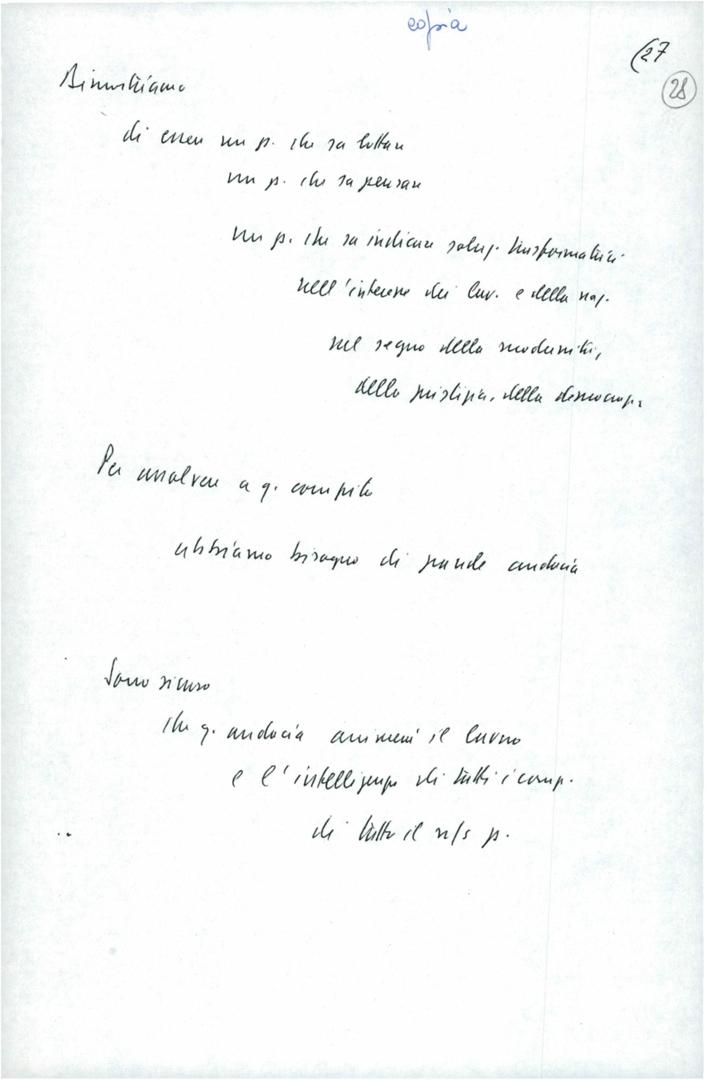 copia
(27
28
Dimostriamo
di essere un p. che sa lottare
un p. che sa pensare
un p. che sa indicare soluz. trasformatrici
nell'interesse dei lav. e della naz.
nel segno della modernità,
della giustizia, della democraz.
Per assolvere a q. compito
abbiamo bisogno di grande audacia
Sono sicuro
che q. audacia animerà il lavoro
e l'intelligenza di tutti i comp.
di tutto il n/s p.